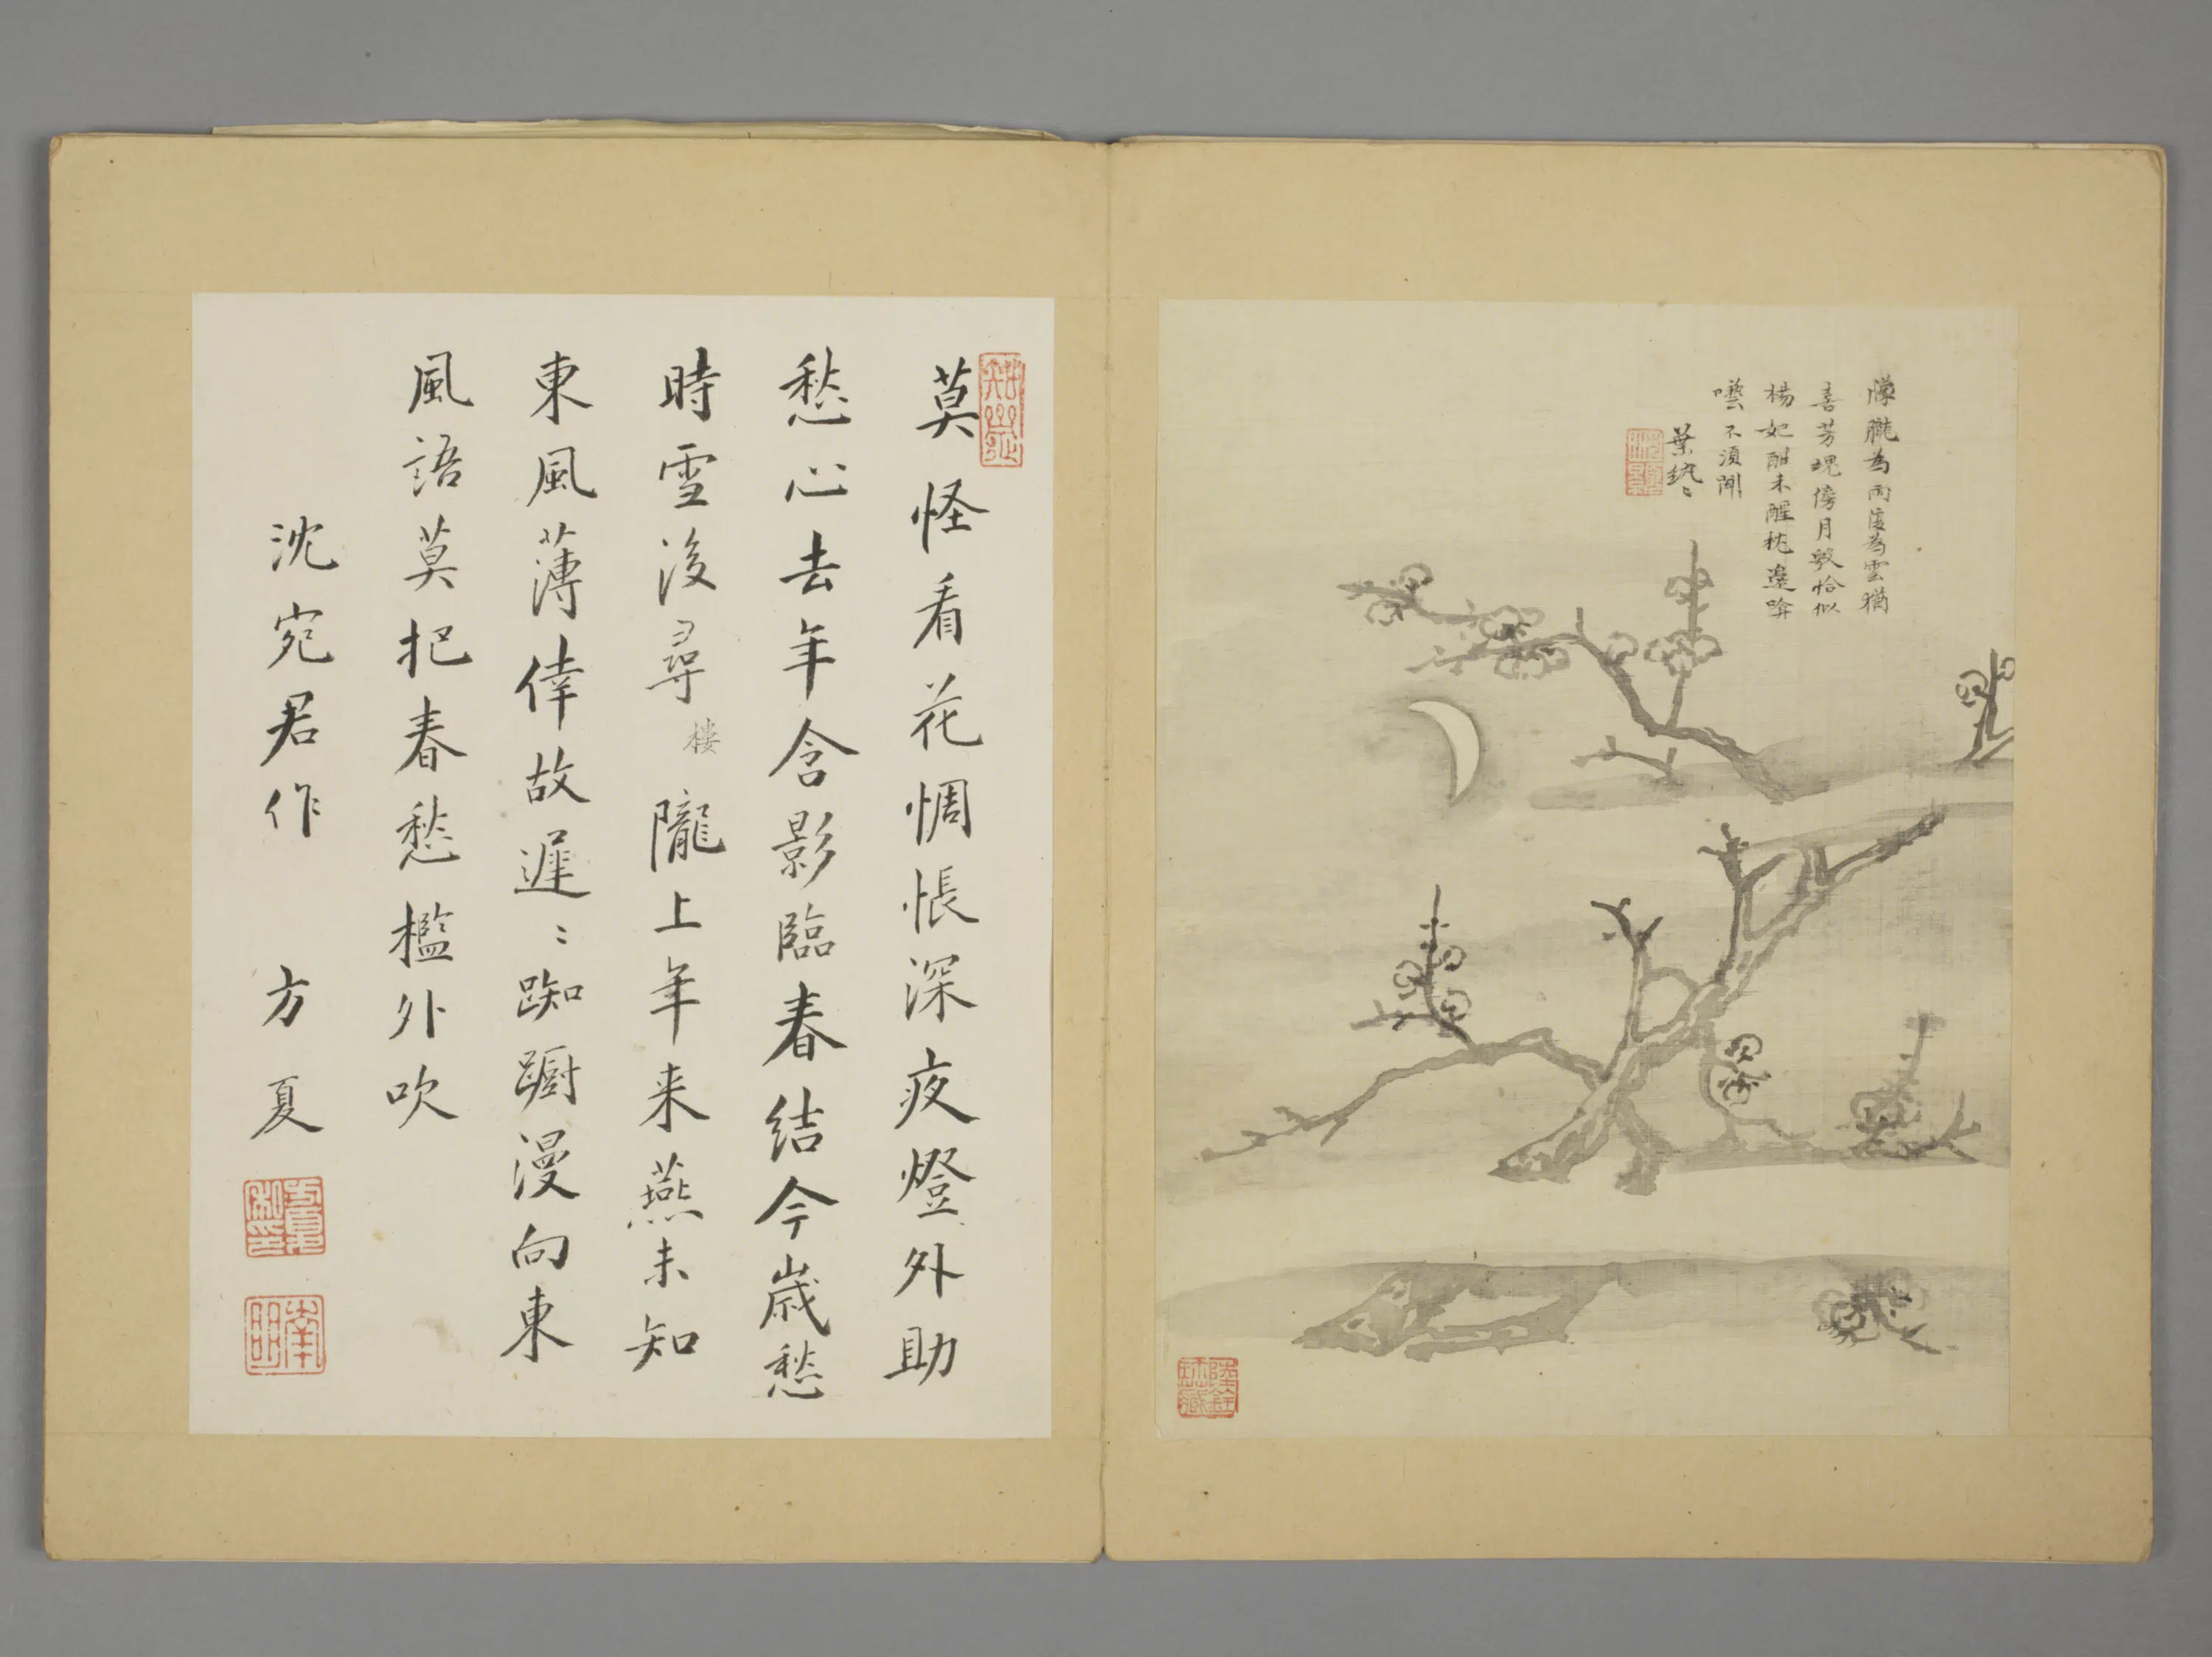 朦朧為雨復為雲猶
喜芳魂傍月殘恰似
楊妃酣未醒枕邊啼
囈不須聞
葉紈紈
莫怪看花惆悵深夜燈外助
愁心去年含影臨春結今歲愁
時雪後尋樓隴上年来燕未知
東風薄倖故遲〻踟躕漫向東
風語莫把春愁檻外吹
沈宛君作 方夏